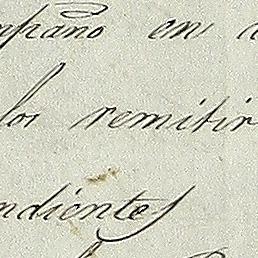 mpaño en
los remitir
ndientes